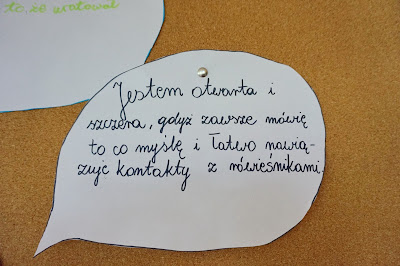 to, że uratował
Jestem otwarta i
szczera, gdyż zawsze mówię
to co myślę i łatwo nawią-
zuję kontakty z rówieśnikami.